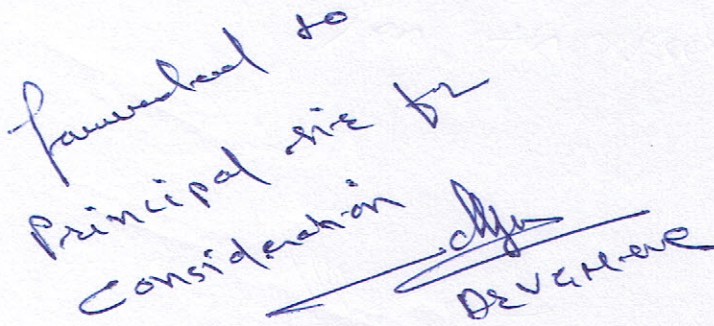 forwarded to
Principal sir for
Consideration